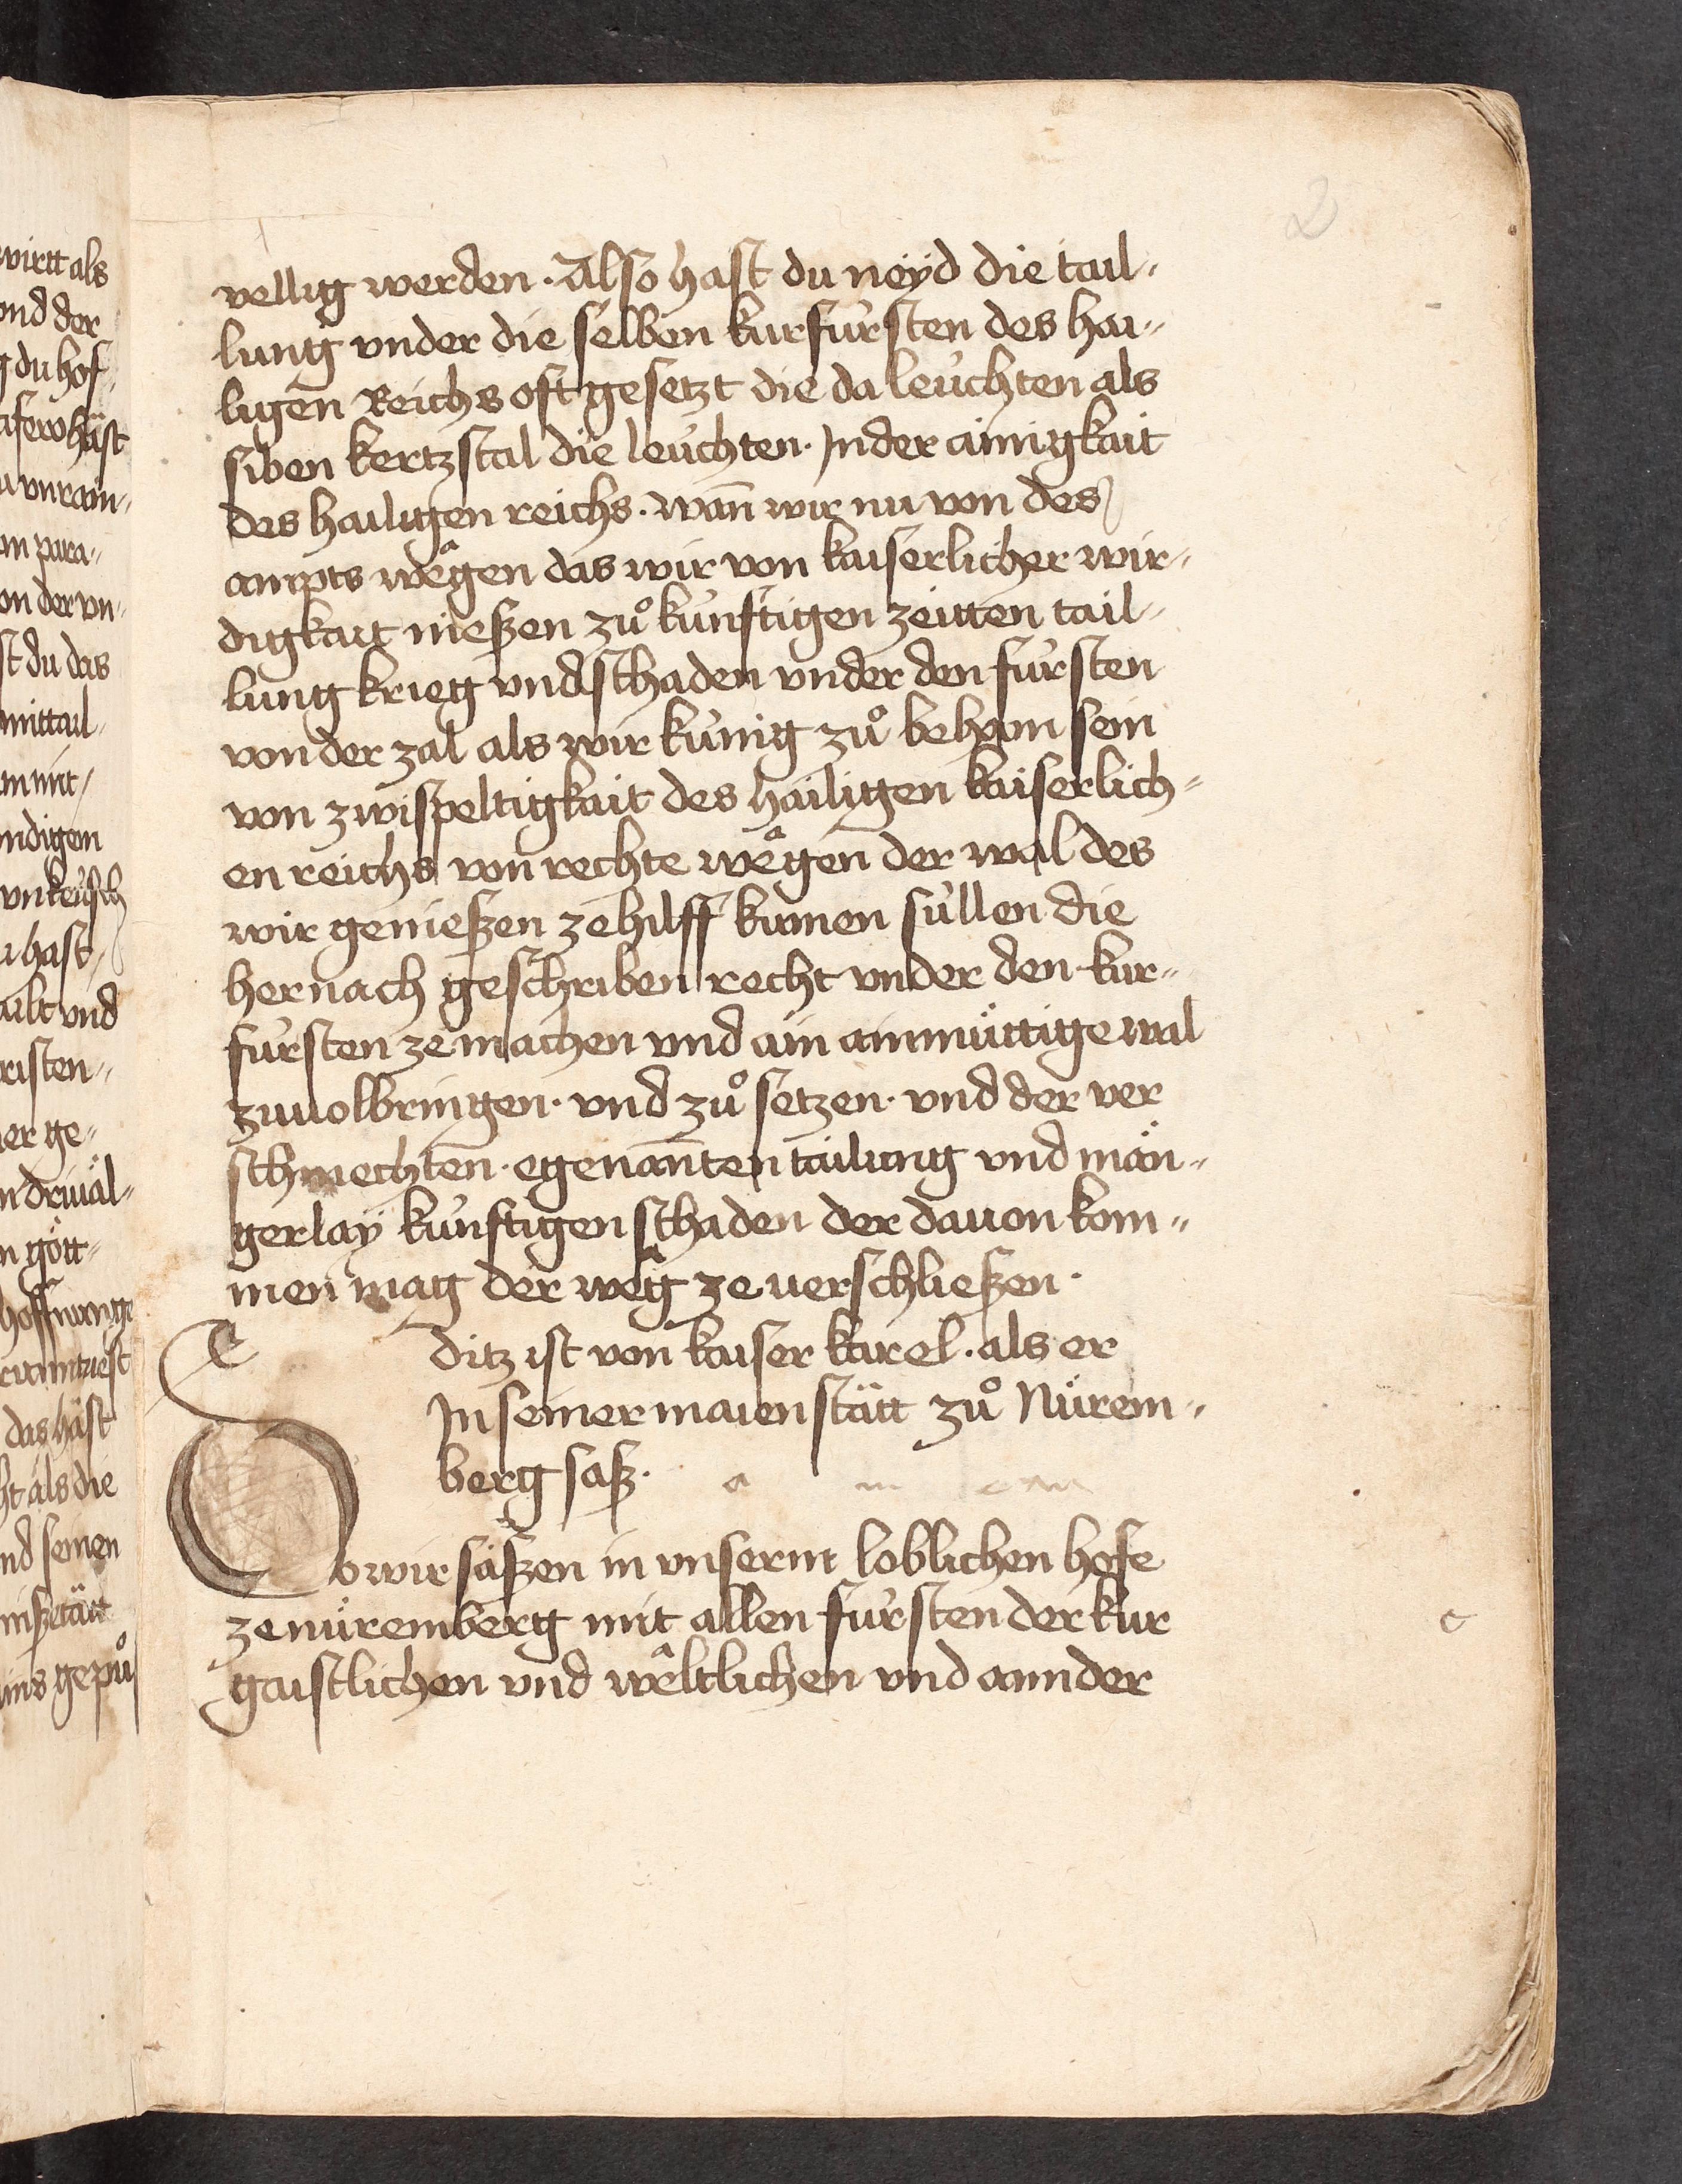 2
vellig werden · Also hast du neyd die tail„
lung vnder die selben kurfürsten des hai„
ligen Reichs oft gesetzt die da leuchten als
siben kertzstal die leuchten · In der ainigkait
des hailigen reichs · wan̄ wir nu von des
ampts wegen das wir von kaiserlicher wir„
digkait nießen zů kunftigen zeitten tail„
lung krieg vnd schaden vnder den fürsten
von der zal als wir künig zů behem sein
von zwispeltigkait des hailigen kaiserlich„
en reichs von rechte wegen der wal des
wir genießen ze hilff kumen süllen die
hernach geschriben recht vnder den kur„
fürsten ze machen vnd ain ainmüttige wal
zuuolbringen · vnd zů setzen · vnd der ver
schmechten · egenan̄ten tailung vnd män„
gerlaÿ künftigen schaden der dauon kom„
men mag der weg ze uerschließen ·
ditz ist von kaiser karel · als er
In seiner maienstätt zů Nürem„
berg saß ·
Do wir säßen in vnserm loblichen hofe
ze nüremberg mit allen fürsten der kur
gaistlichen vnd weltlichen vnd annder
wirtt als
vnd der
du hof„
hast
vnrain„
para„
on der vn„
st du das
mittail
mit
ndigen
vnkeusch
hast
vnd
risten„
er ge„
gött„
das häst
ht als die
nd seinen